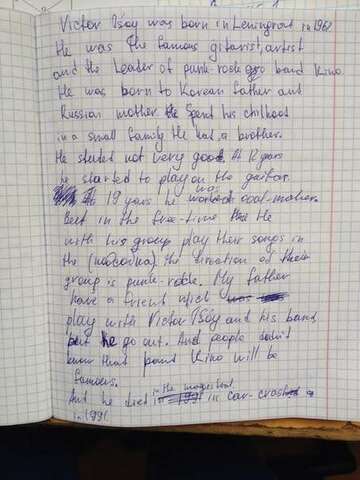 Victor Tsoy was born in Leningrat in 1962
He was the famous gitarist, artist
and the leader of punk-rock band Kino.
He was born to Korean father ant
Russian mother He spent his chilhood
in a small family He has a brother.
He studed not very good. At 12 years
he started to play on the guitar.
At 19 years he was coal-maker.
But in the free-time He
with his group play their songs in
the (кочегарка). the diration of their
group is punk-rock. My father
have a frient wich
play with Victor Tsoy and his band
but he go out. And people didn't
know that band Kino will be
famous.
And he diet in the car-crash
in 1991